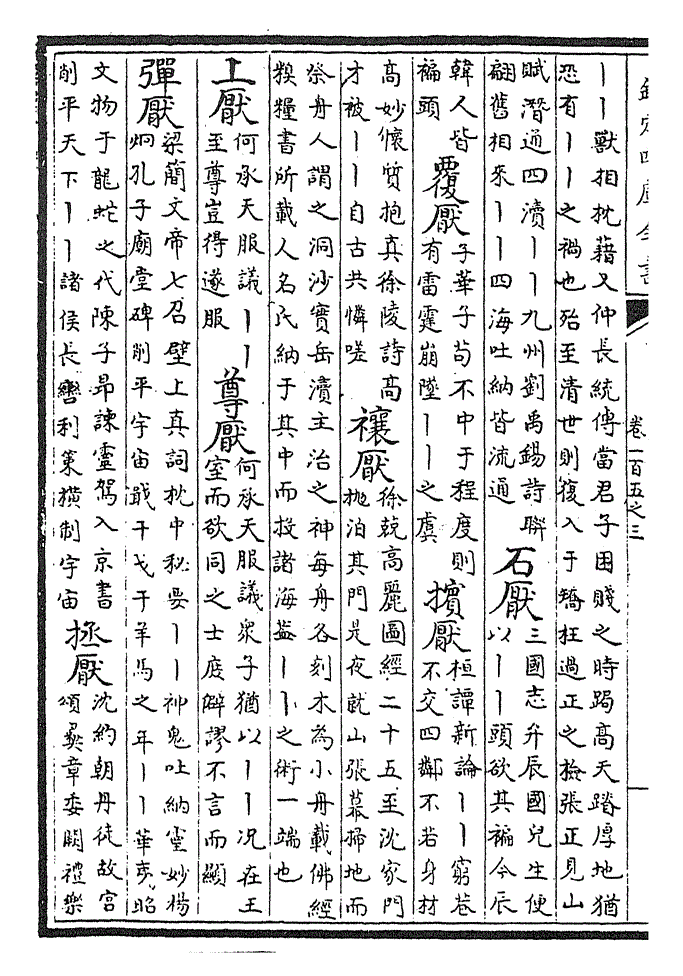 欽定四庫全書
卷一百五之三
丨丨獸相枕藉又仲長統傳當君子困賤之時跼高天蹐厚地猶
恐有丨丨之禍也殆至清世則復入于矯枉過正之檢張正見山
賦潛通四瀆丨丨九州劉禹錫詩聯
翩舊相來丨丨四海吐納皆流通
石厭
三國志弁辰國兒生便
以丨丨頭欲其褊今辰
韓人皆
褊頭
覆厭
子華子苟不中于程度則
有雷霆崩墜丨丨之虞
擯厭
桓譚新論丨丨窮巷
不交四鄰不若身材
高妙懷質抱真徐陵詩高
才被丨丨自古共憐嗟
禳厭
徐兢高麗圖經二十五至沈家門
抛泊其門是夜就山張幕掃地而
祭舟人謂之洞沙實岳瀆主治之神每舟各刻木為小舟載佛經
糗糧書所載人名氏納于其中而投諸海葢丨丨之術一端也
上厭
何承天服議丨丨
至尊豈得遂服
尊厭
何承天服議衆子猶以丨丨况在王
室而欲同之士庶僻謬不言而顯
彈厭
梁簡文帝七召壁上真詞枕中秘要丨丨神鬼吐納靈妙楊
炯孔子廟堂碑削平宇宙戢干戈于羊馬之年丨丨華夷昭
文物于龍蛇之代陳子昂諫靈駕入京書
削平天下丨丨諸侯長轡利策横制宇宙
拯厭
沈約朝丹徒故宫
頌彛章委闕禮樂